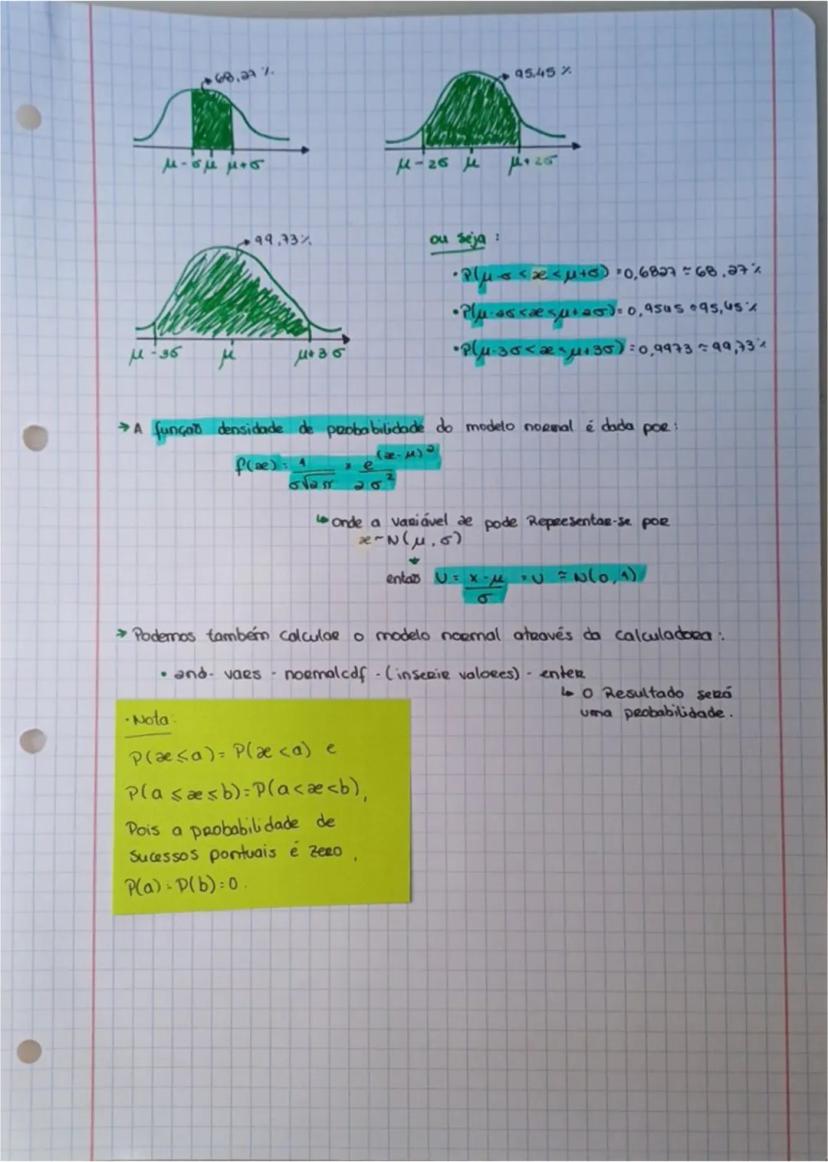 68,27 %.
μ-σ μ μ+σ
95,45 %
μ-2σ μ μ+2σ
99,73%
μ-3σ μ μ+3σ
ou seja :
• P(μ-σ < x < μ+σ) = 0,6827 ≈ 68,27%
• P(μ-2σ < x < μ+2σ) = 0,9545 ≈ 95,45%
• P(μ-3σ < x < μ+3σ) = 0,9973 ≈ 99,73%
→ A função densidade de probabilidade do modelo normal é dada por:
f(x) = 1/σ√2π × e^(x-μ)²/2σ²
↳ onde a variável x pode Representar-se por
x~N(μ,σ)
então U = x-μ/σ = U ≈ N(0,1)
→ Podemos também calcular o modelo normal através da calculadora:
• 2nd - vars - normalcdf - (inserir valores) - enter
↳ O Resultado será
uma probabilidade.
• Nota:
P(x≤a) = P(x<a) e
P(a≤x≤b) = P(a<x<b),
Pois a probabilidade de
Sucessos pontuais é zero,
P(a) = P(b) = 0.